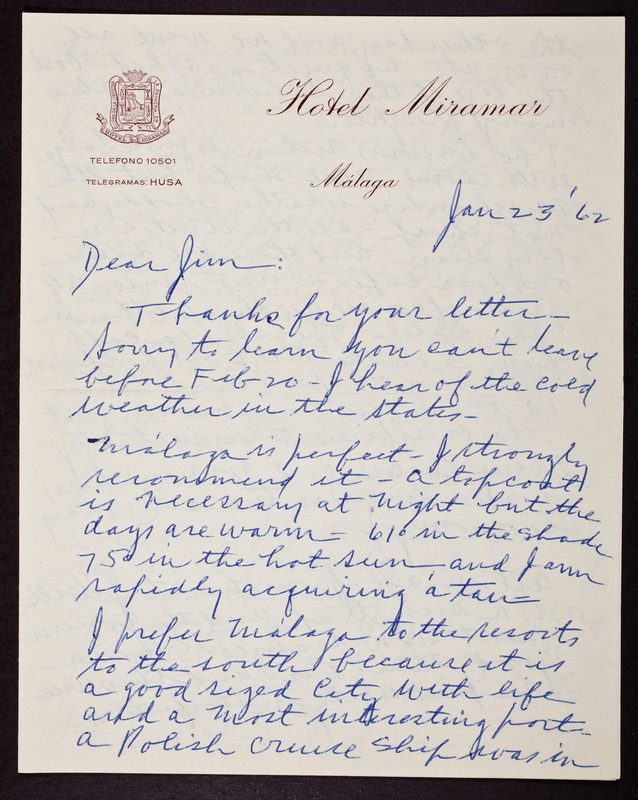 Hotel Miramar
HOTEL MIRAMAR
TELEFONO 10501
TELEGRAMAS: HUSA
Málaga
Jan 23 '62
Dear Jim:
Thanks for your letter –
Sorry to learn you can't leave
before Feb 20 – I hear of the cold
weather in the states –
Málaga is perfect – I strongly
recommend it – a topcoat
is necessary at night but the
days are warm – 61° in the shade
75° in the hot sun and I am
rapidly acquiring a tan –
I prefer Málaga to the resorts
to the south because it is
a good sized City with life
and a most interesting port –
a Polish cruise ship was in